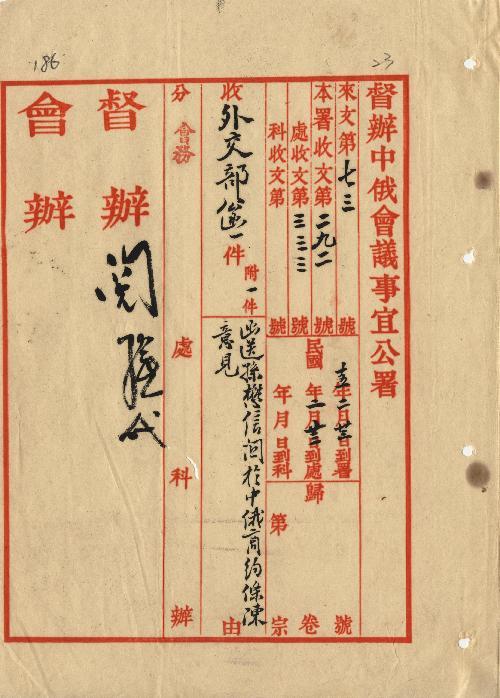 186
23
督辦中俄會議事宜公署
來文第七三號 十五年二月廿三日到署
本署收文第二九二號
處收文第三三三號 民國 年二月廿三日到處
科收文第 號 年 月 日到科
歸 第 宗 卷 號
收 外交部函一件 附一件
函送孫懋信関於中俄商約條陳意見 由
分 會務 處 科 辦
督辦 閱
會辦